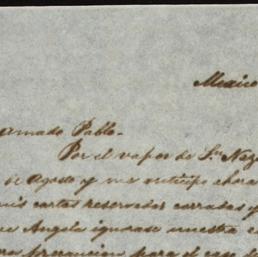 Mexico
amado Pablo.
Por el vapor de Sn. Naz
de Agosto y me anticipo ahora
mis cartas reservadas cerradas y
ue Angela ignorase nuestra c
para el caso